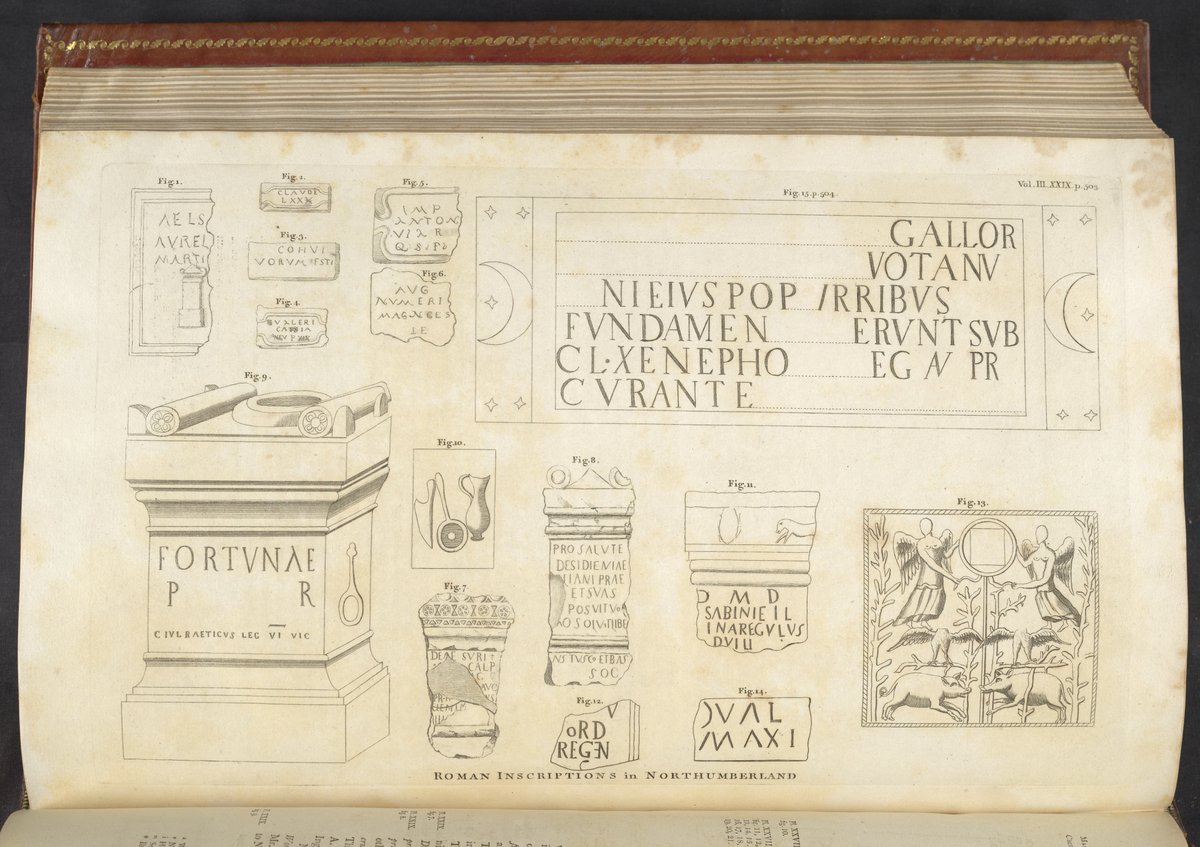 Vol. III. XXIX. p. 503
Fig. 1.
AELS
AVREL
MARTI
Fig. 2.
CLAVDI
LXXX
Fig. 3.
COHVI
VORVM EST
Fig. 4.
CASSIA
Fig. 5.
IMP
ANTON
VI A R
Q. S. P
Fig. 6.
AVG
NVMERI
MAGNCES
IE
Fig. 15. p. 504.
GALLOR
VOTANV
NIEIVS POP IRRIBVS
FVNDAMEN ERVNT SVB
CL·XENEPHO EG N PR
CVRANTE
Fig. 9.
FORTVNAE
P R
C IVL RAETICVS LEG VI VIC
Fig. 10.
Fig. 7.
DEAE SVRI
CALP
Fig. 8.
PRO SALVTE
DESIDIENIAE
LIANI PRAE
ET SVAS
POSVIT VO
AO SOLVIT LIBE
NS TVSCO ET BAS
SOC
Fig. 11.
D M D
SABINIE IL
INAREGVLVS
D VIII
Fig. 12.
V
ORD
REGEN
Fig. 13.
Fig. 14.
VAL
MAXI
ROMAN INSCRIPTIONS in NORTHUMBERLAND